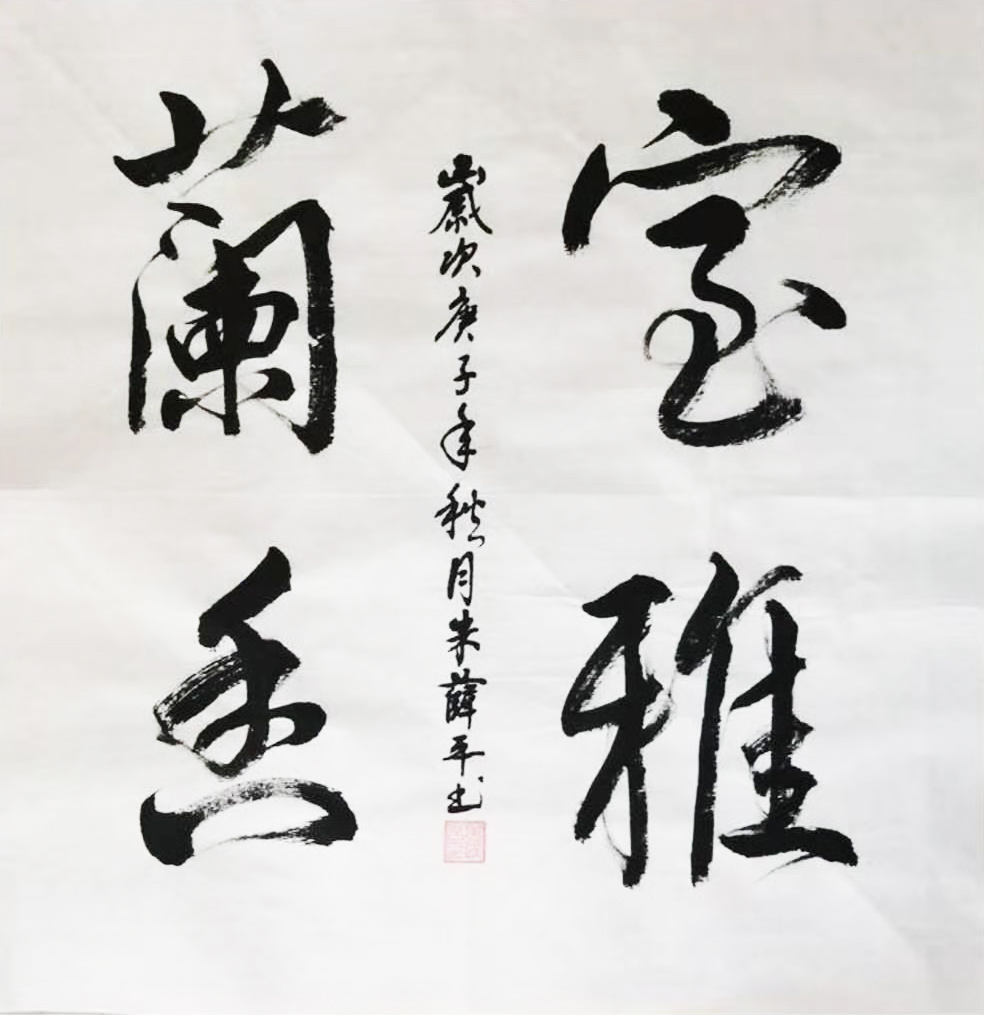 室雅
蘭香
歲次庚子年秋月朱薛平书